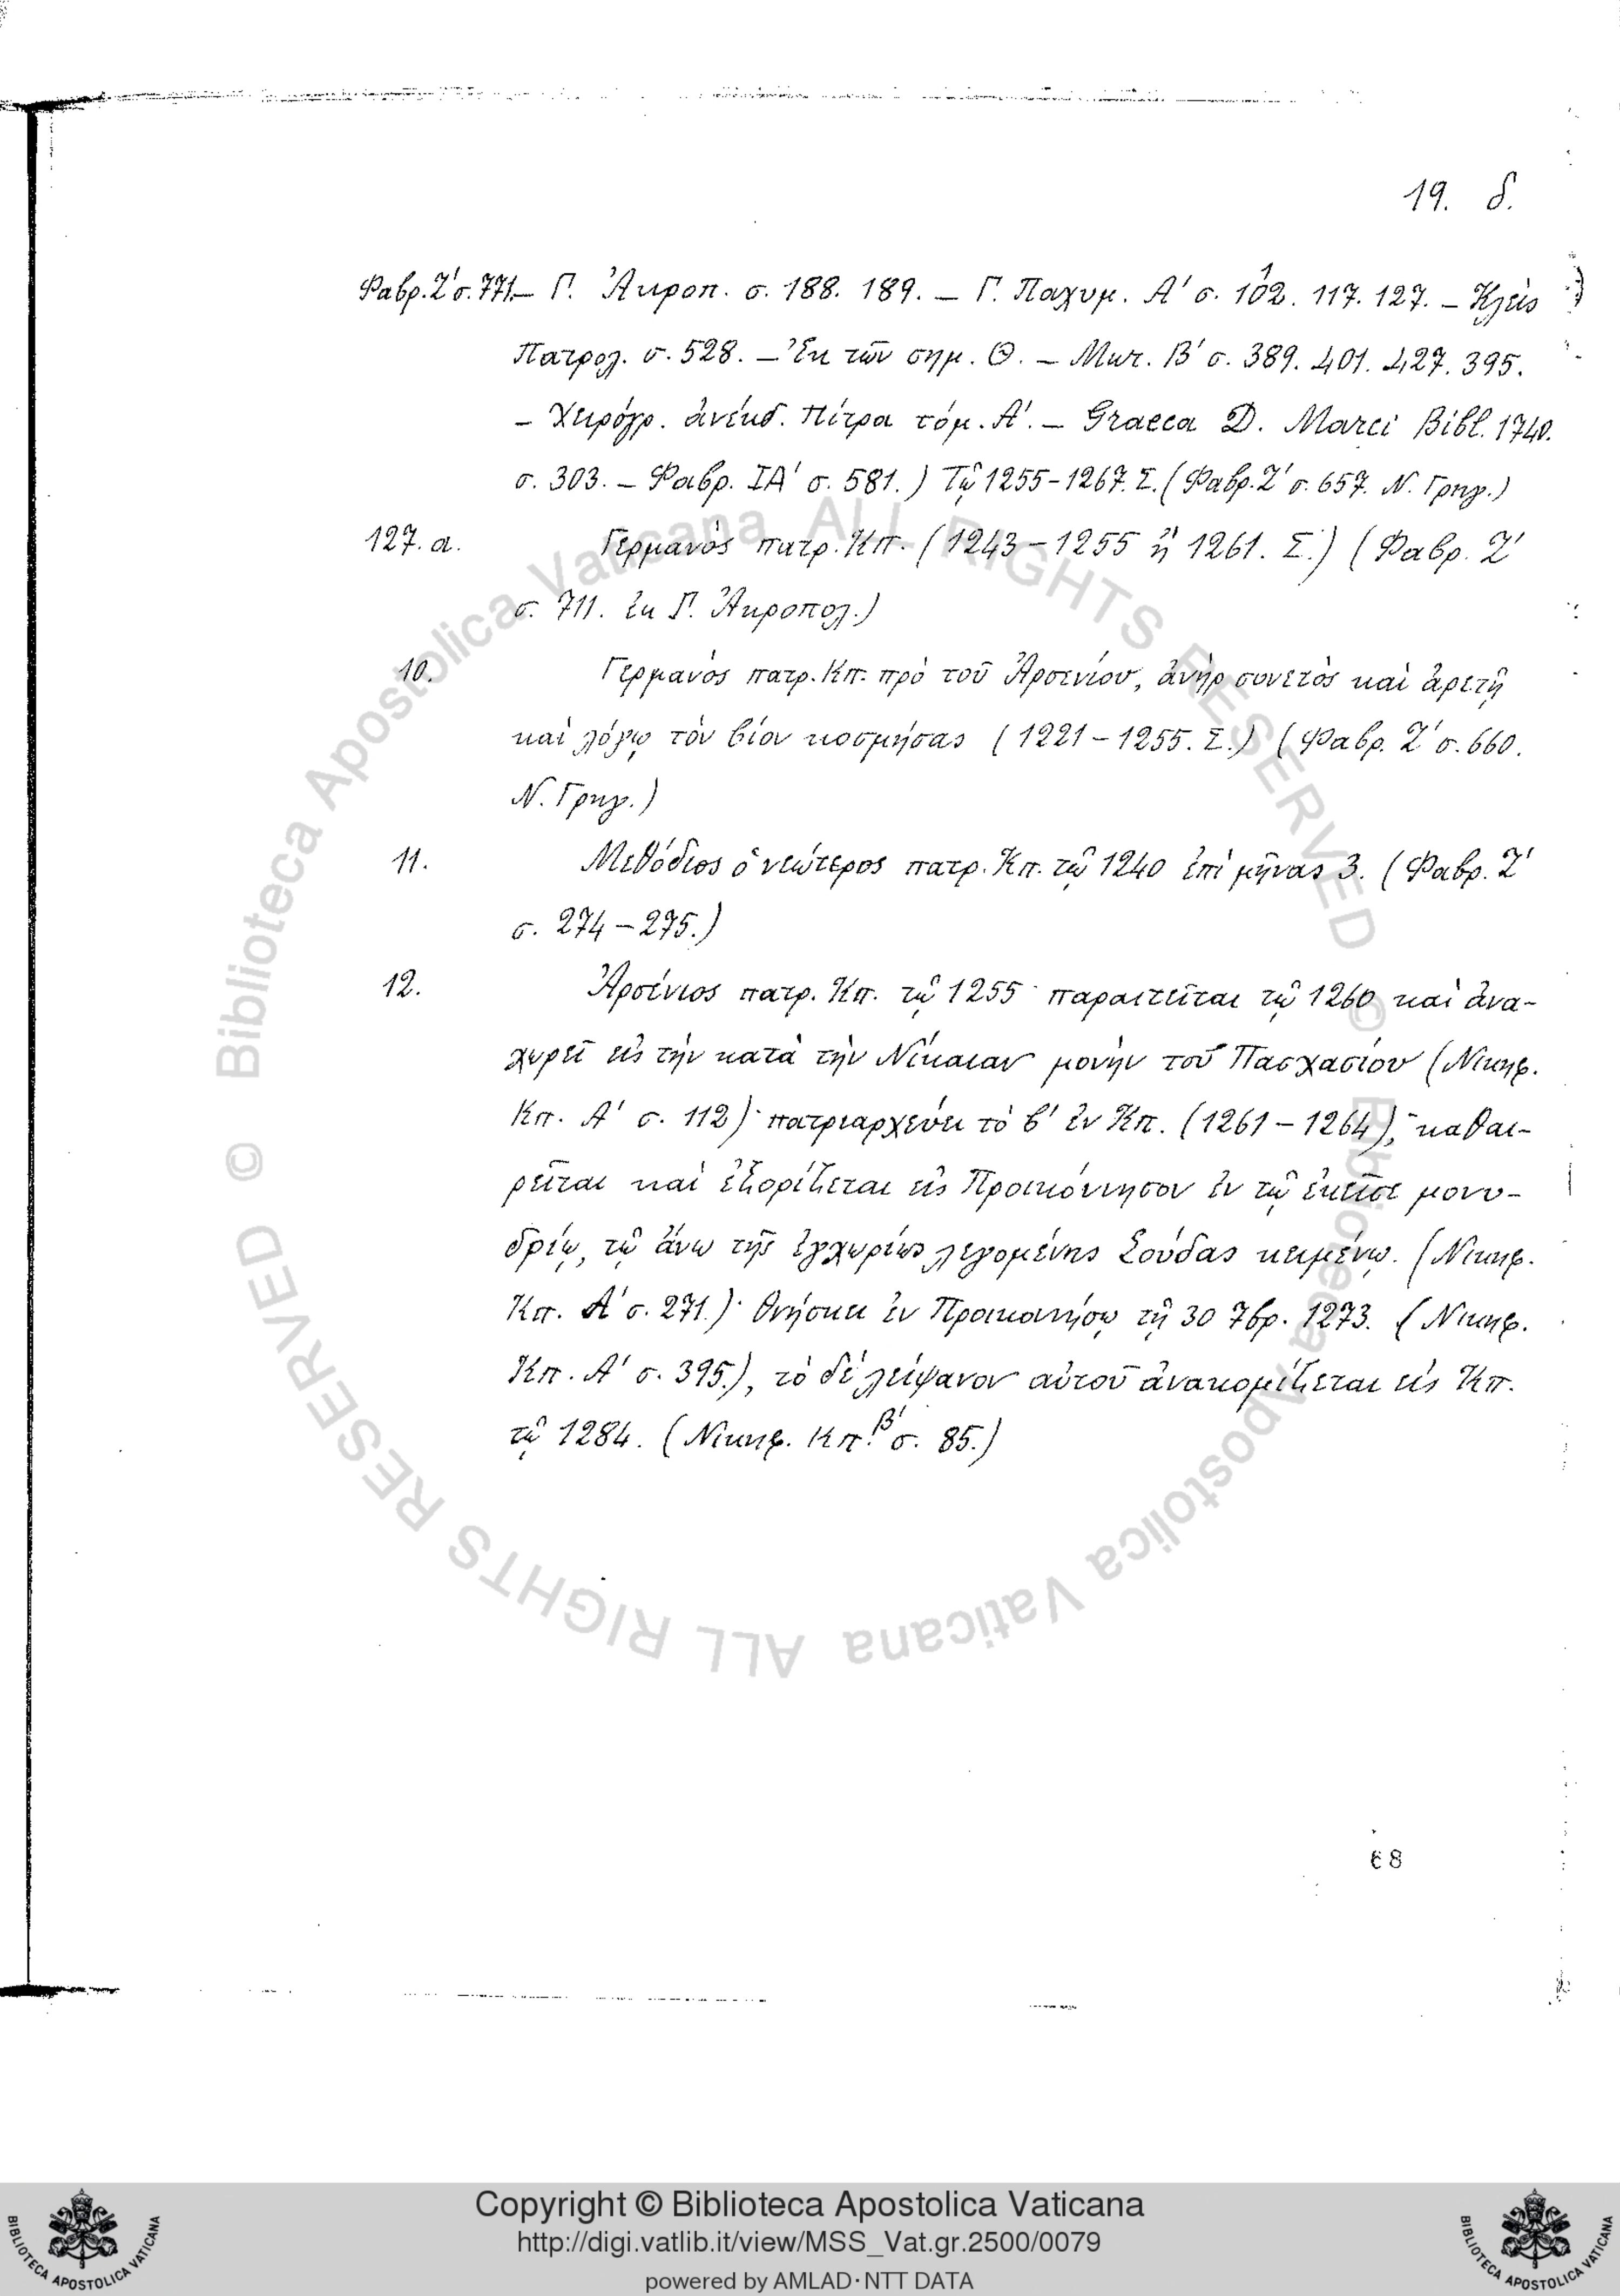 19. δ.
Φαβρ. Ζ' σ. 771. – Γ. Ἀκροπ. σ. 188. 189. – Γ. Παχυμ. Α' σ. 102. 117. 127. – Κλεὶς
Πατρολ. σ. 528. – Ἐκ τῶν σημ. Θ. – Μωτ. Β' σ. 389. 401. 427. 395.
– Χειρόγρ. ἀνέκδ. Πίτρα τόμ. Α'. – Graeca D. Marci Bibl. 1740.
σ. 303. – Φαβρ. ΙΑ' σ. 581.) Τῷ 1255–1267. Σ. (Φαβρ. Ζ' σ. 657. Ν. Γρηγ.)
127. α. Γερμανὸς πατρ. Κπ. (1243–1255 ἢ 1261. Σ.) (Φαβρ. Ζ'
σ. 711. ἐκ Γ. Ἀκροπολ.)
10. Γερμανὸς πατρ. Κπ. πρὸ τοῦ Ἀρσενίου, ἀνὴρ συνετὸς καὶ ἀρετῇ
καὶ λόγῳ τὸν βίον κοσμήσας (1221–1255. Σ.) (Φαβρ. Ζ' σ. 660.
Ν. Γρηγ.)
11. Μεθόδιος ὁ νεώτερος πατρ. Κπ. τῷ 1240 ἐπὶ μῆνας 3. (Φαβρ. Ζ'
σ. 274–275.)
12. Ἀρσένιος πατρ. Κπ. τῷ 1255· παραιτεῖται τῷ 1260 καὶ ἀνα-
χωρεῖ εἰς τὴν κατὰ τὴν Νίκαιαν μονὴν τοῦ Πασχασίου (Νικηφ.
Κπ. Α' σ. 112)· πατριαρχεύει τὸ β' ἐν Κπ. (1261–1264), καθαι-
ρεῖται καὶ ἐξορίζεται εἰς Προικόννησον ἐν τῷ ἐκεῖσε μονυ-
δρίῳ, τῷ ἄνω τῆς ἐγχωρίως λεγομένης Σούδας κειμένῳ. (Νικηφ.
Κπ. Α' σ. 271.)· θνήσκει ἐν Προικονήσῳ τῇ 30 7βρ. 1273. (Νικηφ.
Κπ. Α' σ. 395.), τὸ δὲ λείψανον αὐτοῦ ἀνακομίζεται εἰς Κπ.
τῷ 1284. (Νικηφ. Κπ. Β' σ. 85.)
68
© Biblioteca Apostolica Vaticana ALL RIGHTS RESERVED
© Biblioteca Apostolica Vaticana ALL RIGHTS RESERVED
Copyright © Biblioteca Apostolica Vaticana
http://digi.vatlib.it/view/MSS_Vat.gr.2500/0079
powered by AMLAD·NTT DATA
BIBLIOTECA APOSTOLICA VATICANA
BIBLIOTECA APOSTOLICA VATICANA